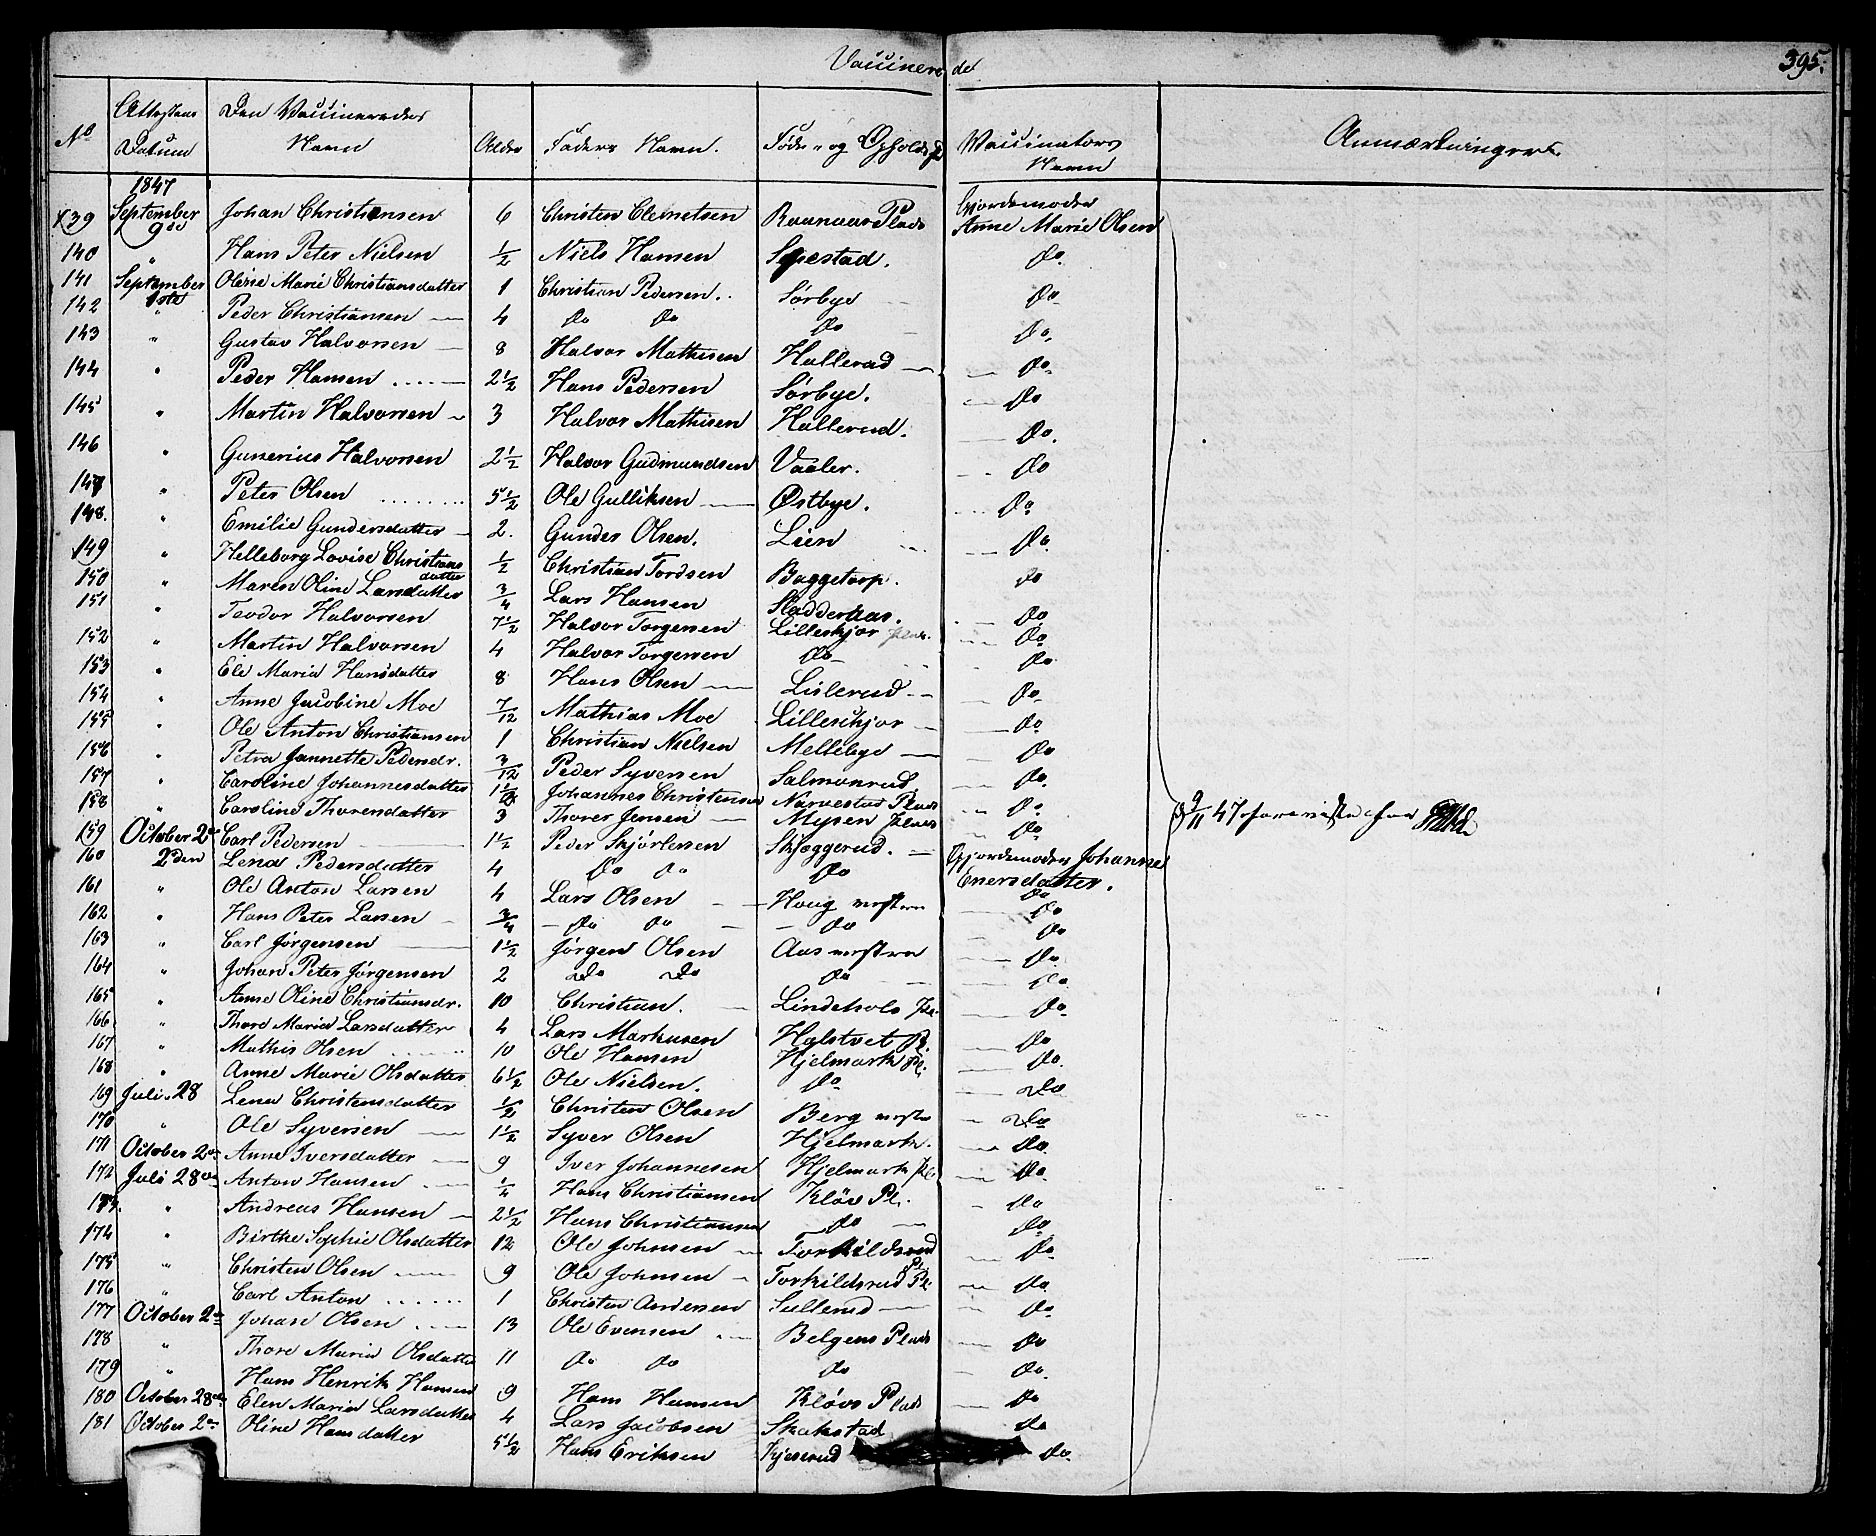 Vaccinerede
395.
No Attestens Datum Den Vaccineredes Navn Alder Faders Navn. Føde- og Opholds Vaccinators Navn Anmærkninger.
1847
139 September 9de Johan Christiansen 6 Christen Clemetsen Plads Gjordemoder Anne Marie Olsen
140 " Hans Peter Nielsen 1/2 Niels Hansen Do.
141 September Olene Marie Christiansdatter 1 Christian Pedersen. Sørbye Do
142 " Peder Christiansen 4 Do Do Do Do.
143 " Gustav Halvorsen 8 Halvor Mathisen Hallerud Do.
144 " Peder Hansen 2 1/2 Hans Pedersen Sørbye. Do
145 " Martin Halvorsen 3 Halvor Mathisen Hallerud. Do.
146 " Gunerius Halvorsen 2 1/2 Halvor Gudmundsen Vaaler. Do
147 " Peter Olsen 5 1/2 Ole Gulliksen Østbye. Do
148. " Emilie Gundersdatter 2. Gunder Olsen. Lien Do.
149 " Helleborg Lovise Christiansdatter 1/2 Christian Tordsen Baggetorp. Do
150 " Maren Oline Larsdatter 3/4 Lars Hansen Sladderaas. Do
151 " Teodor Halvorsen 7 1/2 Halvor Torgersen Lilleskjør Do
152 " Martin Halvorsen 4 Halvor Torgersen Do Do
153 " Ele Maria Hansdatter 8 Hans Olsen Lislerud Do
154 " Anne Jacobine Moe 7/12 Mathias Moe Lilleskjør Do
155 " Ole Anton Christiansen 1 Christian Nielsen Mellebye Do
156 " Petra Jannette Pedersdr. 3/12 Peder Syversen Salmonrud Do.
157 " Caroline Johannesdatter 1 1/2 Johannes Christensen Narvestad Plads Do
158 " Caroline Thorersdatter 3 Thorer Jensen Mysen Plads Do
159 October 2den Carl Pedersen 1 1/2 Peder Skjørtersen Skjæggerud. Gjordemoder Johanne Enersdatter.
160 2den Lena Pedersdatter 4 Do Do Do Do
161 " Ole Anton Larsen 4 Lars Olsen Houg vestre Do
162 " Hans Peter Larsen 3/4 Do Do Do Do
163 " Carl Jørgensen 1 1/2 Jørgen Olsen Aas vestre Do
164 " Johan Peter Jørgensen 2 Do Do Do Do.
165 " Anne Oline Christiansdr. 10 Christian. Lindehols Pl. Do.
166 " Thore Maria Larsdatter 4 Lars Markusen Hglstvet Pl. Do
167 " Mathis Olsen 10 Ole Hansen Hjelmark Pl. Do.
168 " Anne Marie Olsdatter 6 1/2 Ole Nielsen. Do Do
169 Juli 28 Lena Christensdatter 1/2 Christen Olsen Berg vestre Do
170 " Ole Syversen 1 1/2 Syver Olsen Hjelmark. Do.
171 October 2den Anne Iversdatter 9 Iver Johannesen Hjelmark Pl. Do.
172 Juli 28de Anton Hansen 1/4 Hans Christiansen Kløvs Pl. Do
173. " Andreas Hansen 2 1/2 Hans Christiansen Do Do
174 " Birthe Sophie Olsdatter 12 Ole Johnsen Torkildsrud Do
175 " Christen Olsen 9 Ole Johnsen Torkildsrud Pl. Do.
176 " Carl Anton 1 Christen Andersen Sullerud Do.
177 October 2den Johan Olsen 13 Ole Evensen Belgens Plads Do
178 " Thore Maria Olsdatter 11 Do Do Do Do.
179 " Hans Henrik Hansen 9 Hans Hansen Kløvs Plads Do
180 October 28de Elen Maria Larsdatter 4 Lars Jacobsen Skakstad Do
181 October 2den Oline Hansdatter 5 1/2 Hans Eriksen Kjeserud Do.
9/11 47